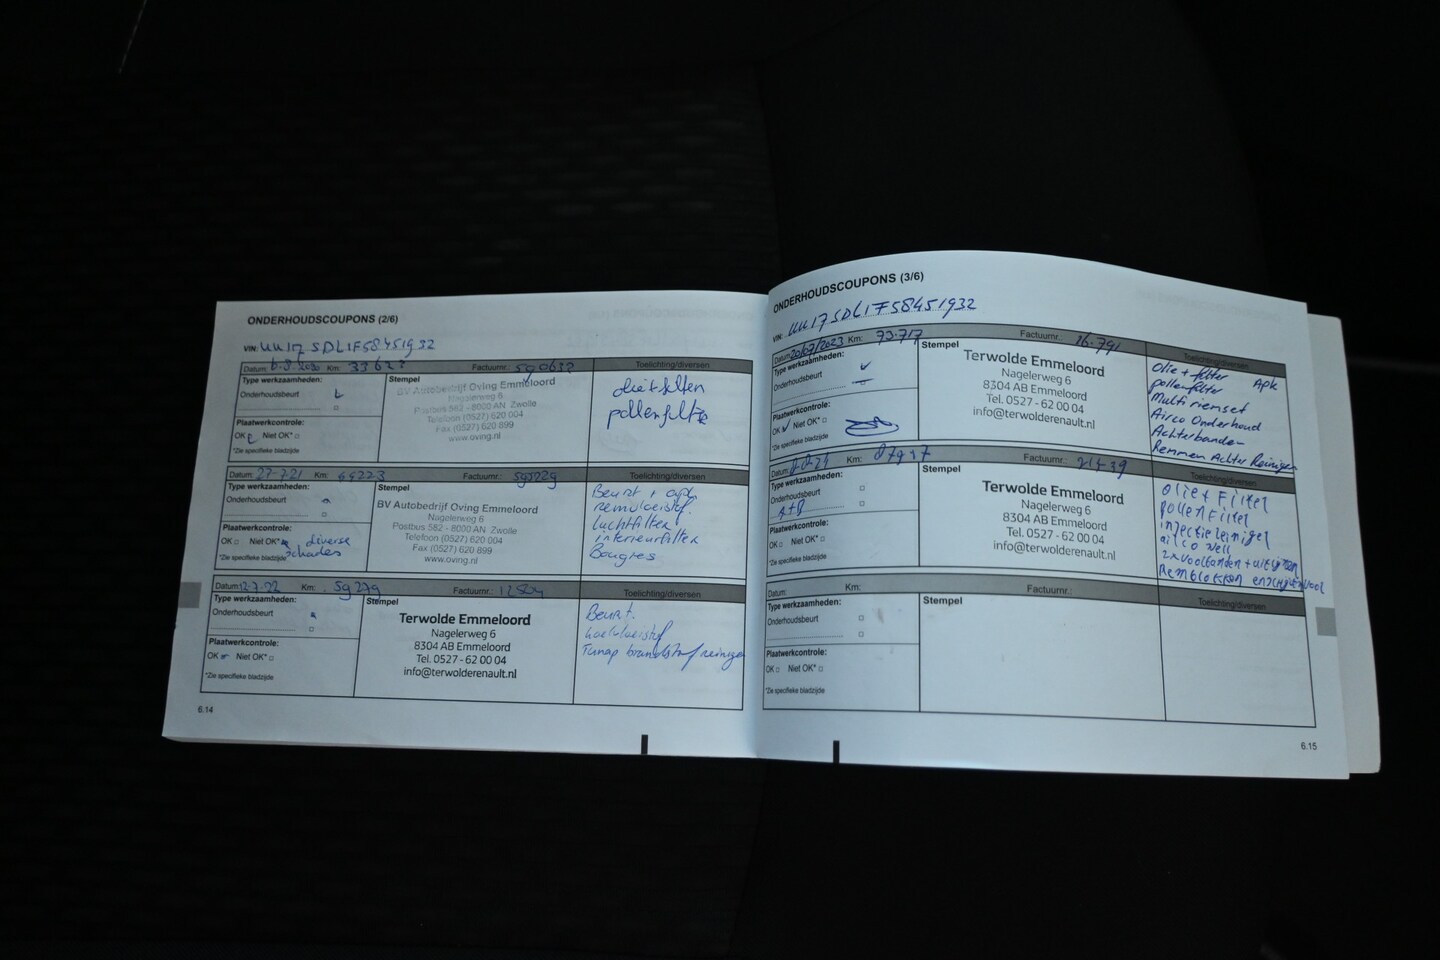 ONDERHOUDSCOUPONS (2/6)
VIN: UU17SDL1F58451932
Datum: Km: Factuurnr.: Toelichting/diversen
Type werkzaamheden:
Onderhoudsbeurt
Plaatwerkcontrole:
OK Niet OK*
*Zie specifieke bladzijde
Stempel
BV Autobedrijf Oving Emmeloord
Nagelerweg 6
Postbus 582 - 8000 AN Zwolle
Telefoon (0527) 620 004
Fax (0527) 620 899
www.oving.nl
pollenfilter
Datum: 27-7-21 Km: Factuurnr.: Toelichting/diversen
Type werkzaamheden:
Onderhoudsbeurt
Plaatwerkcontrole:
OK Niet OK* diverse
schades
*Zie specifieke bladzijde
Stempel
BV Autobedrijf Oving Emmeloord
Nagelerweg 6
Postbus 582 - 8000 AN Zwolle
Telefoon (0527) 620 004
Fax (0527) 620 899
www.oving.nl
Beurt +
remvloeistof
luchtfilter
interieurfilter
Bougies
Datum: 12-7-22 Km: 59279 Factuurnr.: Toelichting/diversen
Type werkzaamheden:
Onderhoudsbeurt
Plaatwerkcontrole:
OK Niet OK*
*Zie specifieke bladzijde
Stempel
Terwolde Emmeloord
Nagelerweg 6
8304 AB Emmeloord
Tel. 0527 - 62 00 04
info@terwolderenault.nl
Beurt.
koelvloeistof
Tunap brandstof reiniger
6.14
ONDERHOUDSCOUPONS (3/6)
VIN: UU17SDL1F58451932
Datum: 20/07/2023 Km: 73.717 Factuurnr.: 16.791 Toelichting/diversen
Type werkzaamheden:
Onderhoudsbeurt
Plaatwerkcontrole:
OK Niet OK*
*Zie specifieke bladzijde
Stempel
Terwolde Emmeloord
Nagelerweg 6
8304 AB Emmeloord
Tel. 0527 - 62 00 04
info@terwolderenault.nl
Olie + filter APK
pollenfilter
Multi riemset
Airco Onderhoud
Achterbanden
Remmen Achter Reinigen
Datum: Km: Factuurnr.: 21439 Toelichting/diversen
Type werkzaamheden:
Onderhoudsbeurt
Plaatwerkcontrole:
OK Niet OK*
*Zie specifieke bladzijde
Stempel
Terwolde Emmeloord
Nagelerweg 6
8304 AB Emmeloord
Tel. 0527 - 62 00 04
info@terwolderenault.nl
Olie + Filter
pollen Filter
injectiereiniger
airco well
2x voorbanden + uitlijnen
Remblokken
Datum: Km: Factuurnr.: Toelichting/diversen
Type werkzaamheden:
Onderhoudsbeurt
Plaatwerkcontrole:
OK Niet OK*
*Zie specifieke bladzijde
Stempel
6.15